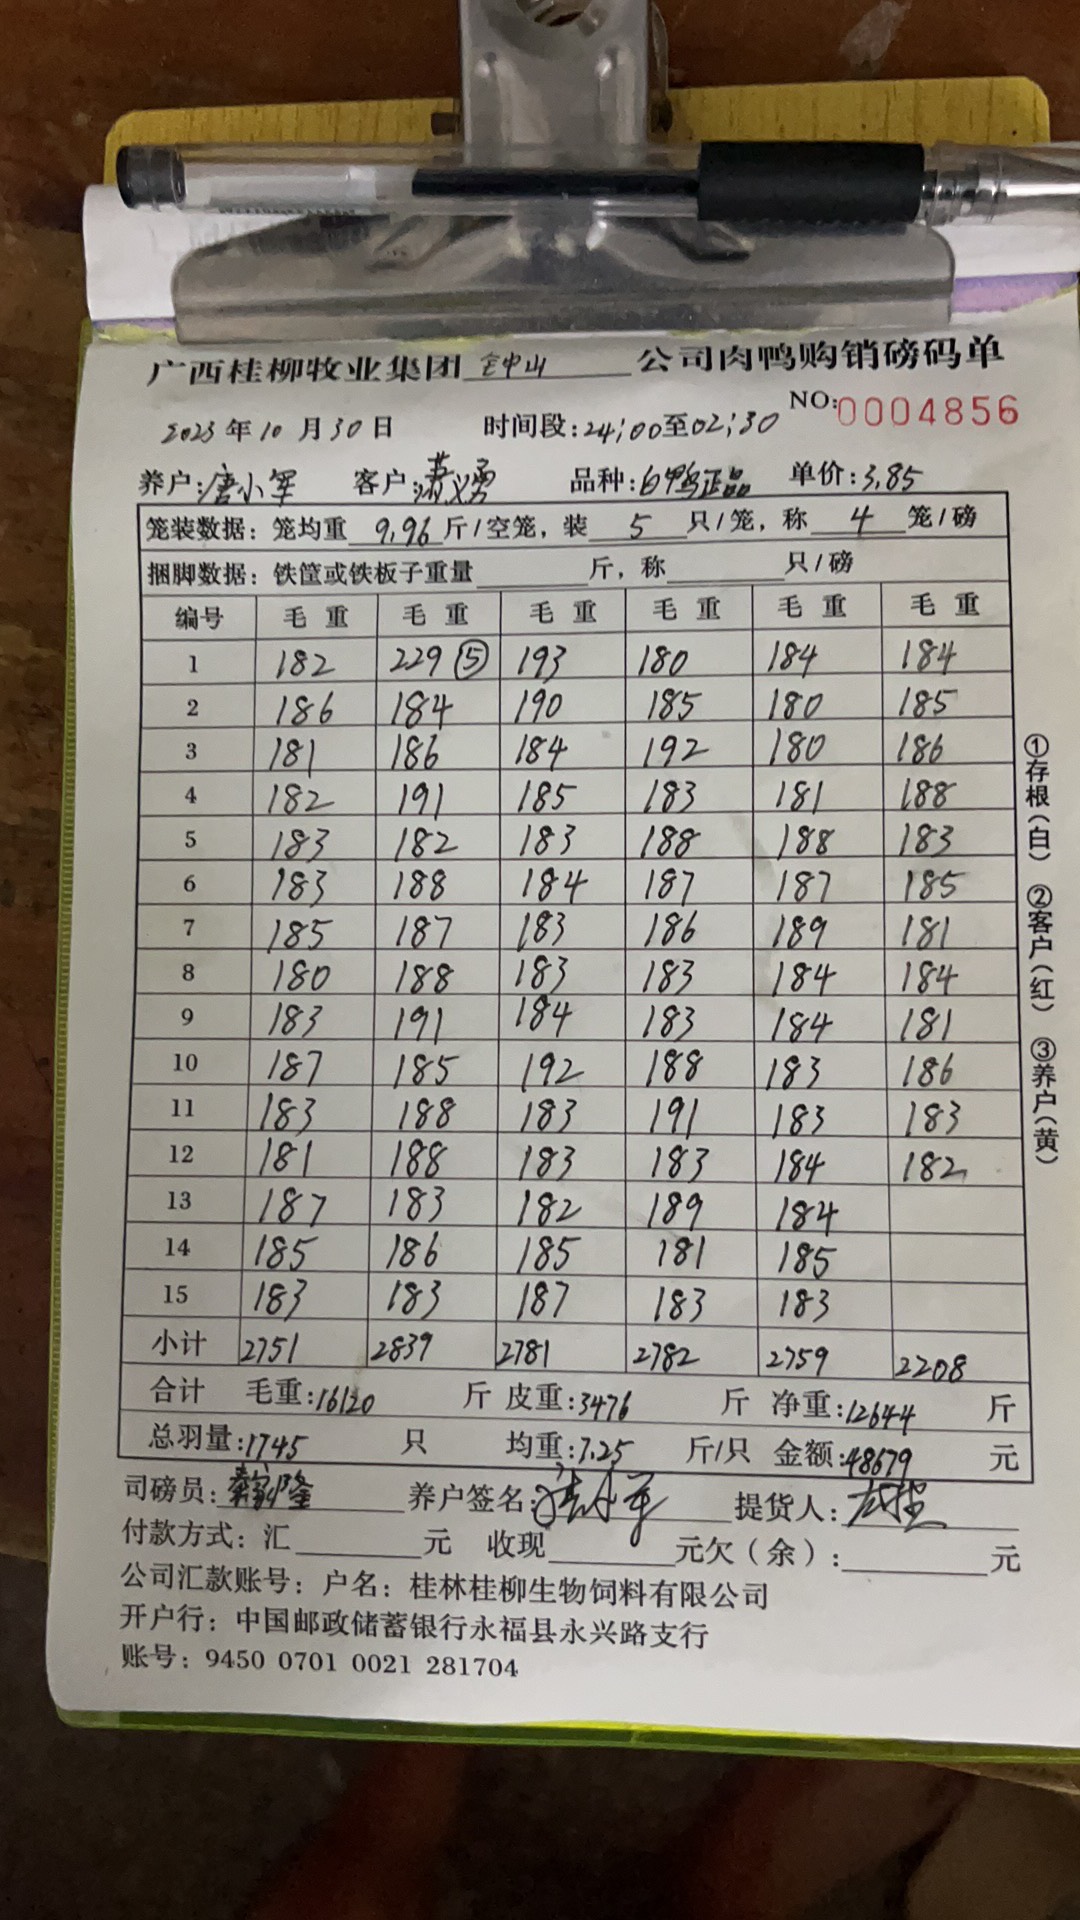 广西桂柳牧业集团 全中山 公司肉鸭购销磅码单
NO:0004856
2023年10月30日 时间段:24:00至02:30
养户:唐小军 客户:萧义勇 品种:白鸭正品 单价:3.85
笼装数据：笼均重 9.96 斤/空笼，装 5 只/笼，称 4 笼/磅
捆脚数据：铁筐或铁板子重量 斤，称 只/磅
编号 毛重 毛重 毛重 毛重 毛重 毛重
1 182 229⑤ 193 180 184 184
2 186 184 190 185 180 185
3 181 186 184 192 180 186
4 182 191 185 183 181 188
5 183 182 183 188 188 183
6 183 188 184 187 187 185
7 185 187 183 186 189 181
8 180 188 183 183 184 184
9 183 191 184 183 184 181
10 187 185 192 188 183 186
11 183 188 183 191 183 183
12 181 188 183 183 184 182
13 187 183 182 189 184
14 185 186 185 181 185
15 183 183 187 183 183
小计 2751 2839 2781 2782 2759 2208
合计 毛重:16120 斤 皮重:3476 斤 净重:12644 斤
总羽量:1745 只 均重:7.25 斤/只 金额:48679 元
司磅员: 养户签名:唐小军 提货人:
付款方式：汇 元 收现 元欠（余）: 元
公司汇款账号：户名：桂林桂柳生物饲料有限公司
开户行：中国邮政储蓄银行永福县永兴路支行
账号：9450 0701 0021 281704
①存根（白） ②客户（红） ③养户（黄）